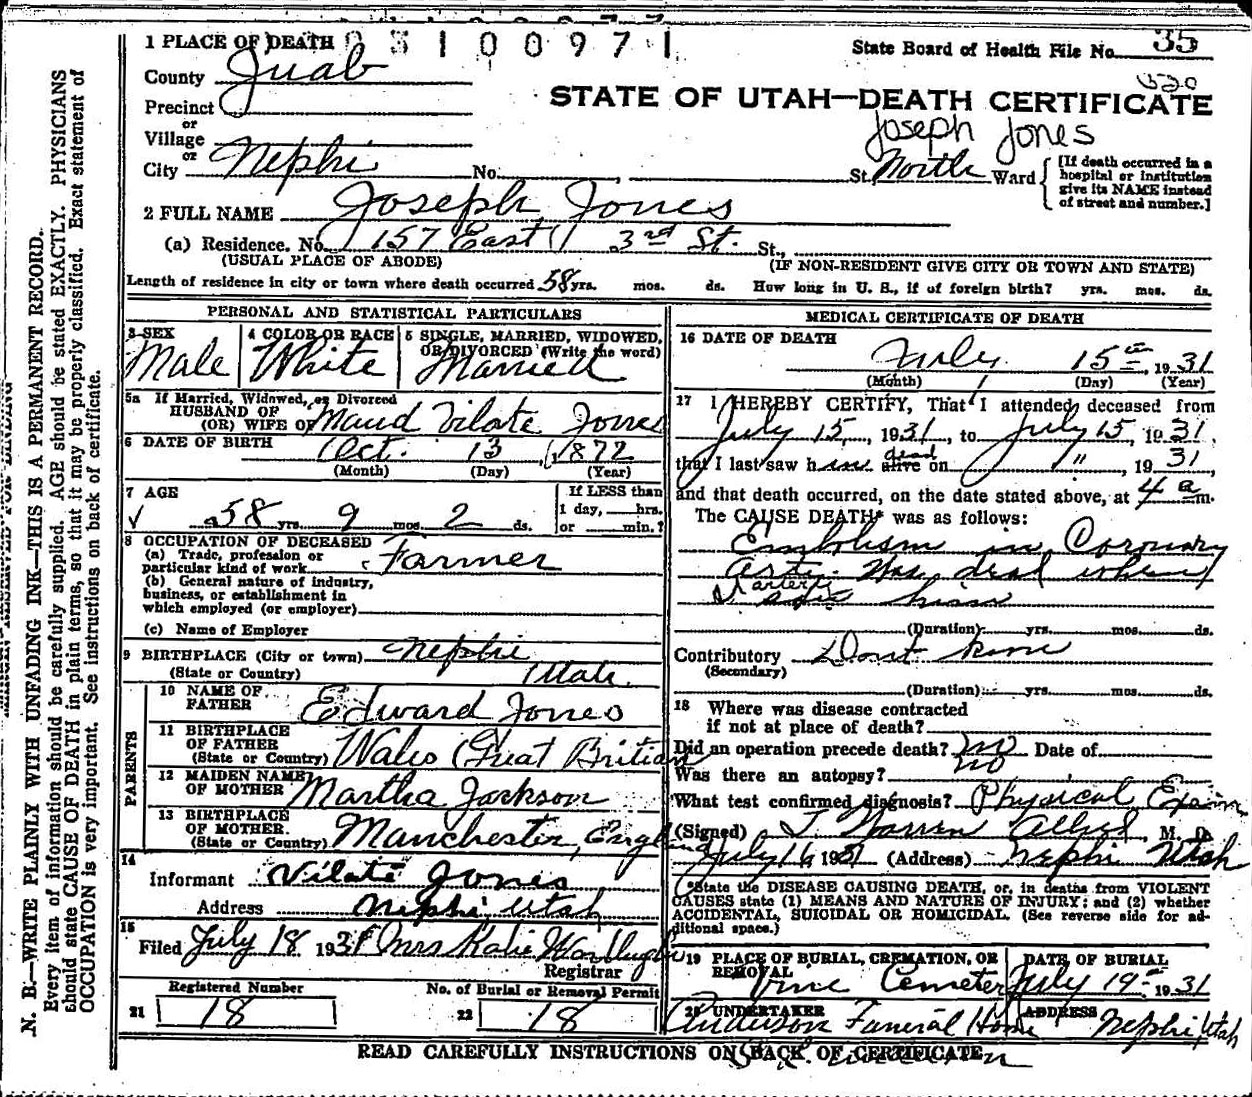 1 PLACE OF DEATH
3 1 0 0 9 7 1
State Board of Health File No. 35
County Juab
530
STATE OF UTAH—DEATH CERTIFICATE
Precinct
or
Joseph Jones
Village
or
City Nephi No. , St. North Ward
[If death occurred in a
hospital or institution
give its NAME instead
of street and number.]
2 FULL NAME Joseph Jones
(a) Residence. No. 157 East 3rd St. St.,
(USUAL PLACE OF ABODE) (IF NON-RESIDENT GIVE CITY OR TOWN AND STATE)
Length of residence in city or town where death occurred 58 yrs. mos. ds. How long in U. S., if of foreign birth? yrs. mos. ds.
PERSONAL AND STATISTICAL PARTICULARS
3 SEX
Male
4 COLOR OR RACE
White
5 SINGLE, MARRIED, WIDOWED,
OR DIVORCED (Write the word)
Married
5a If Married, Widowed, or Divorced
HUSBAND OF
(OR) WIFE OF Maud Vilate Jones
6 DATE OF BIRTH Oct. 13, 1872
(Month) (Day) (Year)
7 AGE
58 yrs. 9 mos. 2 ds.
If LESS than
1 day, hrs.
or min.?
8 OCCUPATION OF DECEASED
(a) Trade, profession or
particular kind of work Farmer
(b) General nature of industry,
business, or establishment in
which employed (or employer)
(c) Name of Employer
9 BIRTHPLACE (City or town) Nephi
(State or Country) Utah.
PARENTS
10 NAME OF
FATHER Edward Jones
11 BIRTHPLACE
OF FATHER
(State or Country) Wales Great Britian
12 MAIDEN NAME
OF MOTHER Martha Jackson
13 BIRTHPLACE
OF MOTHER.
(State or Country) Manchester, England
14
Informant Vilate Jones
Address Nephi, Utah
15
Filed July 18 1931 Mrs Katie
Registrar
Registered Number
21 18
No. of Burial or Removal Permit
22 18
MEDICAL CERTIFICATE OF DEATH
16 DATE OF DEATH
July 15th, 1931
(Month) (Day) (Year)
17 I HEREBY CERTIFY, That I attended deceased from
July 15, 1931, to July 15, 1931,
dead
that I last saw him alive on " , 1931,
and that death occurred, on the date stated above, at 4 a m.
The CAUSE DEATH* was as follows:
Embolism in Coronary
arty. Was dead when
artery
I see him
(Duration) yrs. mos. ds.
Contributory Dont know
(Secondary)
(Duration) yrs. mos. ds.
18 Where was disease contracted
if not at place of death?
Did an operation precede death? no Date of
Was there an autopsy? no
What test confirmed diagnosis? Physical Exam
(Signed) J. Warren Allred M. D.
July 16 1931 (Address) Nephi Utah
*State the DISEASE CAUSING DEATH, or, in deaths from VIOLENT
CAUSES state (1) MEANS AND NATURE OF INJURY; and (2) whether
ACCIDENTAL, SUICIDAL OR HOMICIDAL. (See reverse side for ad-
ditional space.)
19 PLACE OF BURIAL, CREMATION, OR
REMOVAL
Vine Cemetery
DATE OF BURIAL
July 19th 1931
20 UNDERTAKER
Anderson Funeral Home
ADDRESS
Nephi, Utah
READ CAREFULLY INSTRUCTIONS ON BACK OF CERTIFICATE
N. B.—WRITE PLAINLY WITH UNFADING INK—THIS IS A PERMANENT RECORD.
Every item of information should be carefully supplied. AGE should be stated EXACTLY. PHYSICIANS
should state CAUSE OF DEATH in plain terms, so that it may be properly classified. Exact statement of
OCCUPATION is very important. See instructions on back of certificate.